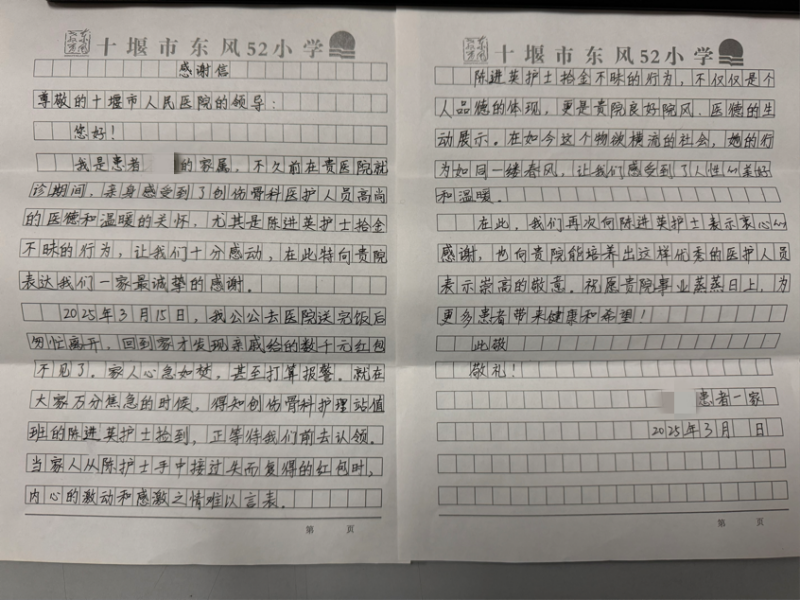 十堰市东风52小学
感谢信
尊敬的十堰市人民医院的领导：
您好！
我是患者 的家属，不久前在贵医院就
诊期间，亲身感受到了创伤骨科医护人员高尚
的医德和温暖的关怀，尤其是陈进英护士拾金
不昧的行为，让我们十分感动，在此特向贵院
表达我们一家最诚挚的感谢。
2025年3月15日，我公公去医院送完饭后
匆忙离开，回到家才发现亲戚给的数千元红包
不见了。家人心急如焚，甚至打算报警。就在
大家万分焦急的时候，得知创伤骨科护理站值
班的陈进英护士捡到，正等待我们前去认领。
当家人从陈护士手中接过失而复得的红包时，
内心的激动和感激之情难以言表。
第 页
十堰市东风52小学
陈进英护士拾金不昧的行为，不仅仅是个
人品德的体现，更是贵院良好院风、医德的生
动展示。在如今这个物欲横流的社会，她的行
为如同一缕春风，让我们感受到了人性的美好
和温暖。
在此，我们再次向陈进英护士表示衷心的
感谢，也向贵院能培养出这样优秀的医护人员
表示崇高的敬意。祝愿贵院事业蒸蒸日上，为
更多患者带来健康和希望！
此致
敬礼！
患者一家
2025年3月 日
第 页